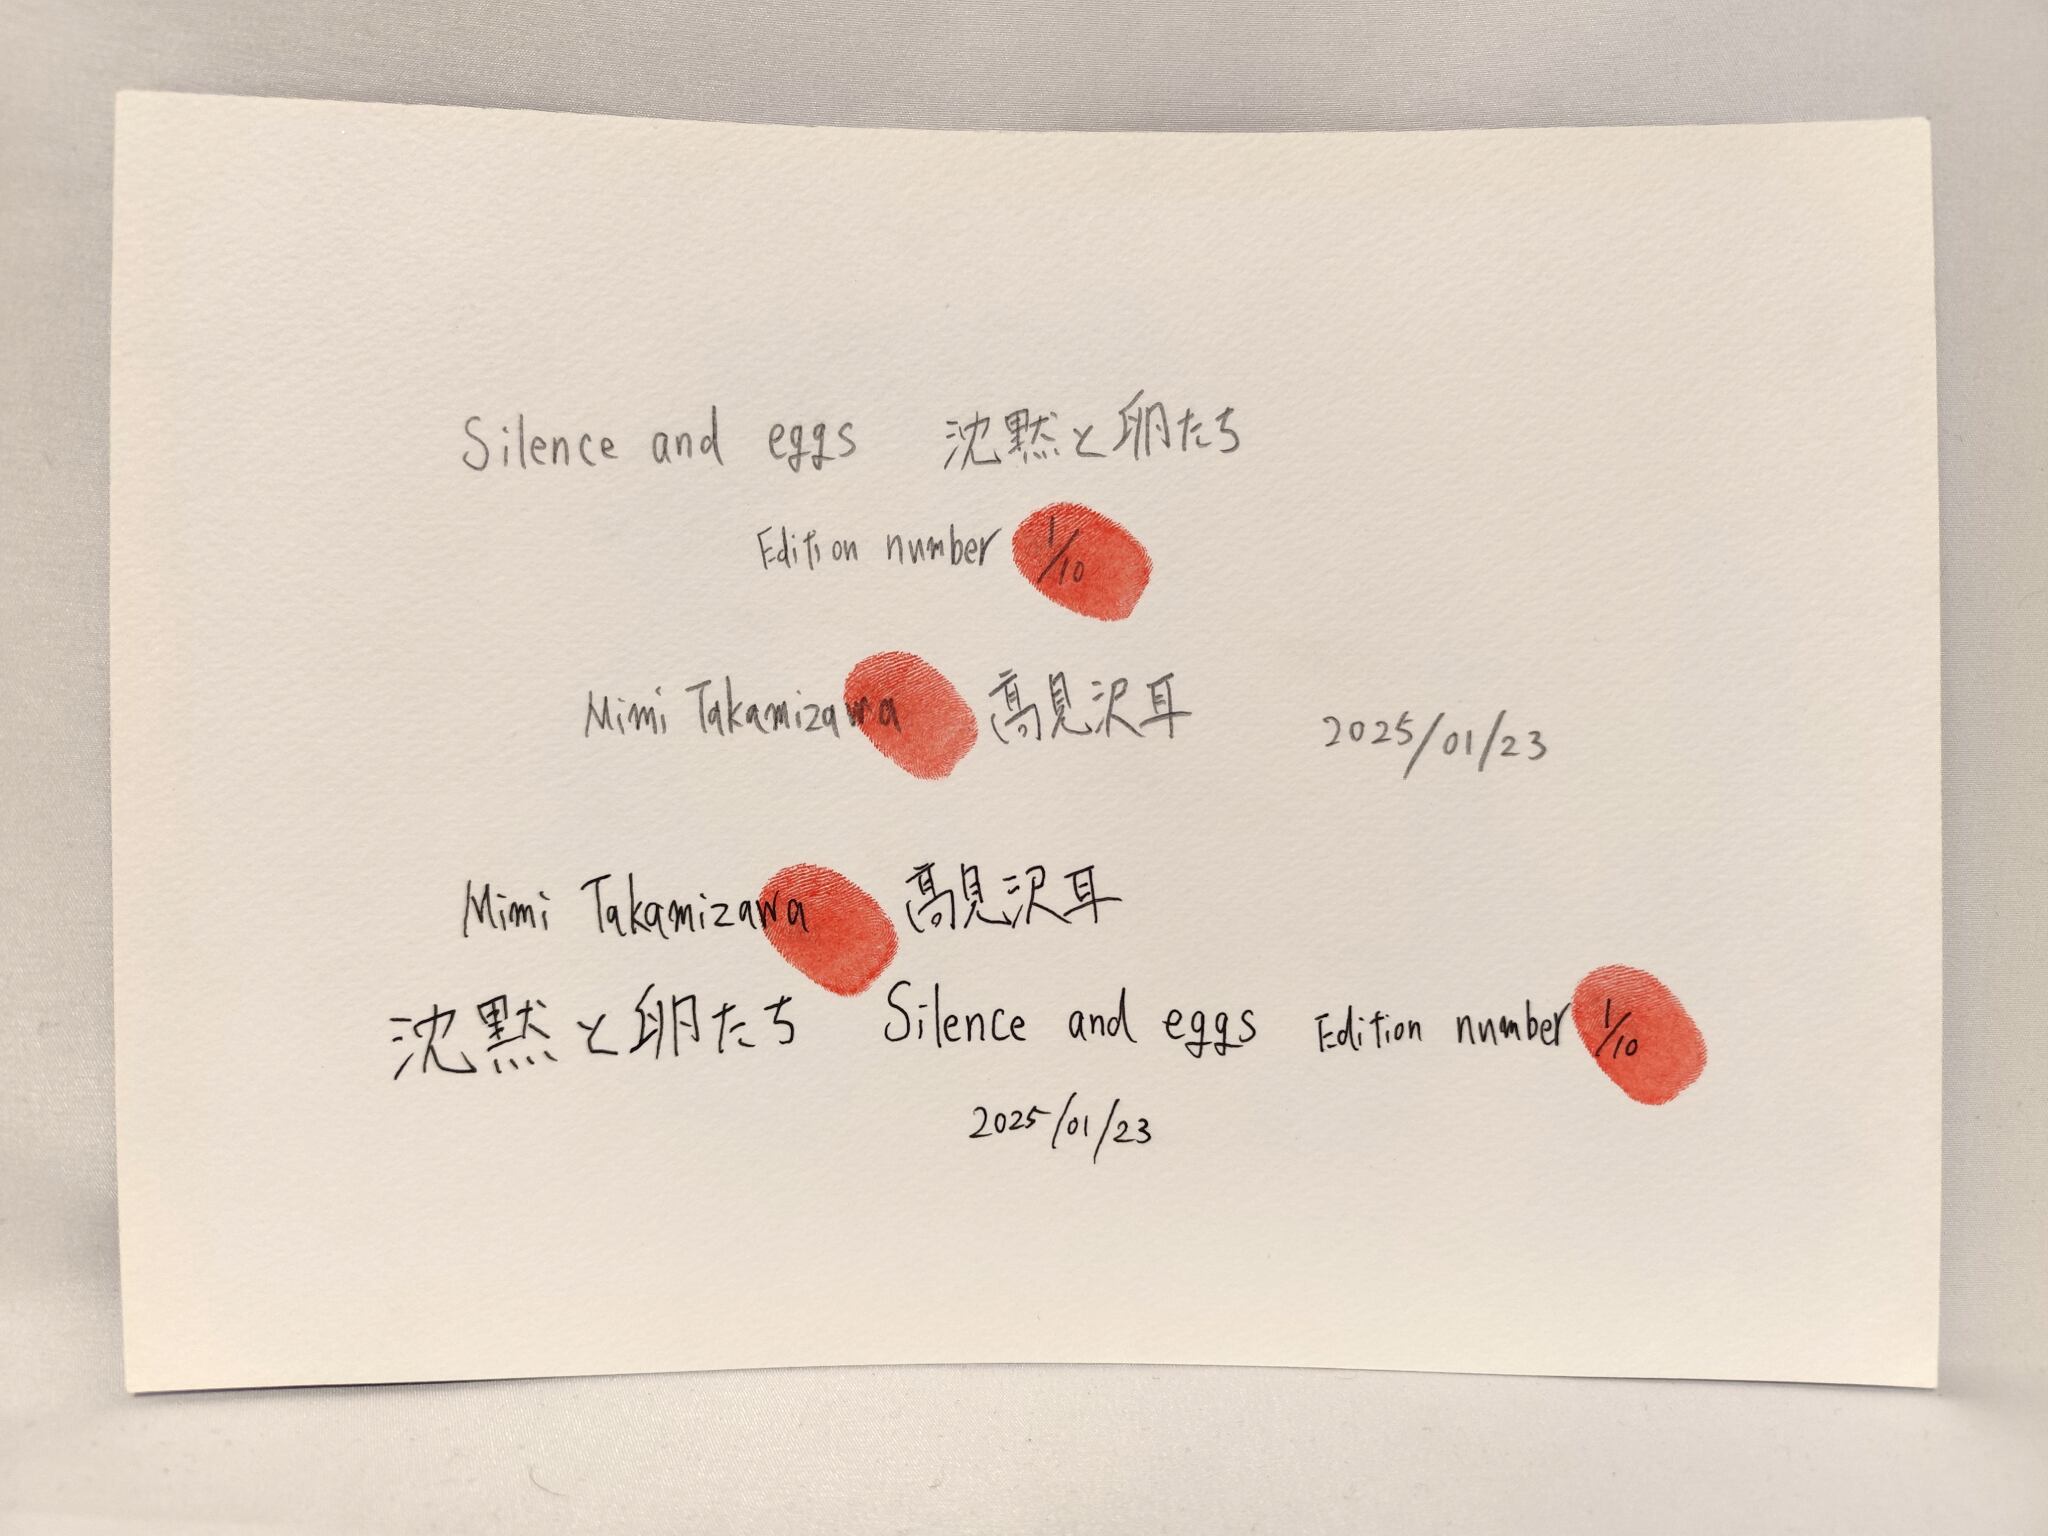 Silence and eggs 沈黙と卵たち
Edition number 1/10
Mimi Takamizawa 高見沢耳 2025/01/23
Mimi Takamizawa 高見沢耳
沈黙と卵たち Silence and eggs Edition number 1/10
2025/01/23